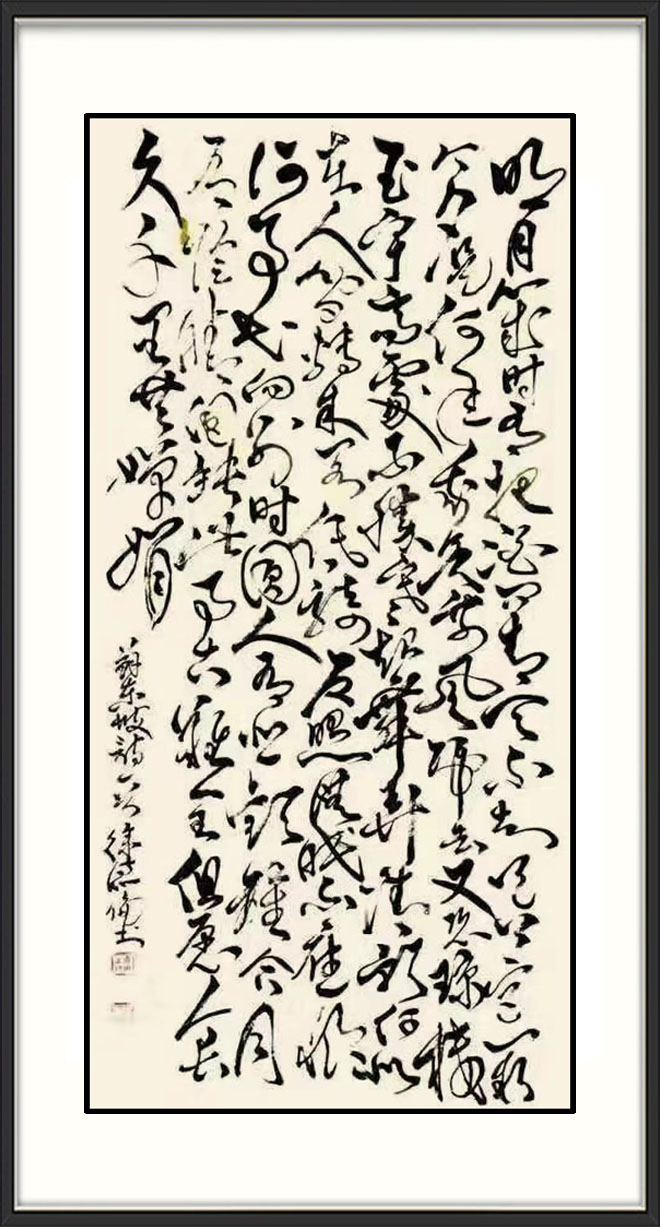 明月幾时有把酒问青天不知天上宫阙
今夕是何年我欲乘风归去又恐瓊樓
玉宇高處不勝寒起舞弄清影何似
在人间轉朱阁低綺户照無眠不應恨
何事長向别时圆人有悲歡離合月
有陰晴圆缺此事古難全但愿人長
久千里共嬋娟
蘇东坡詩一首 徐书